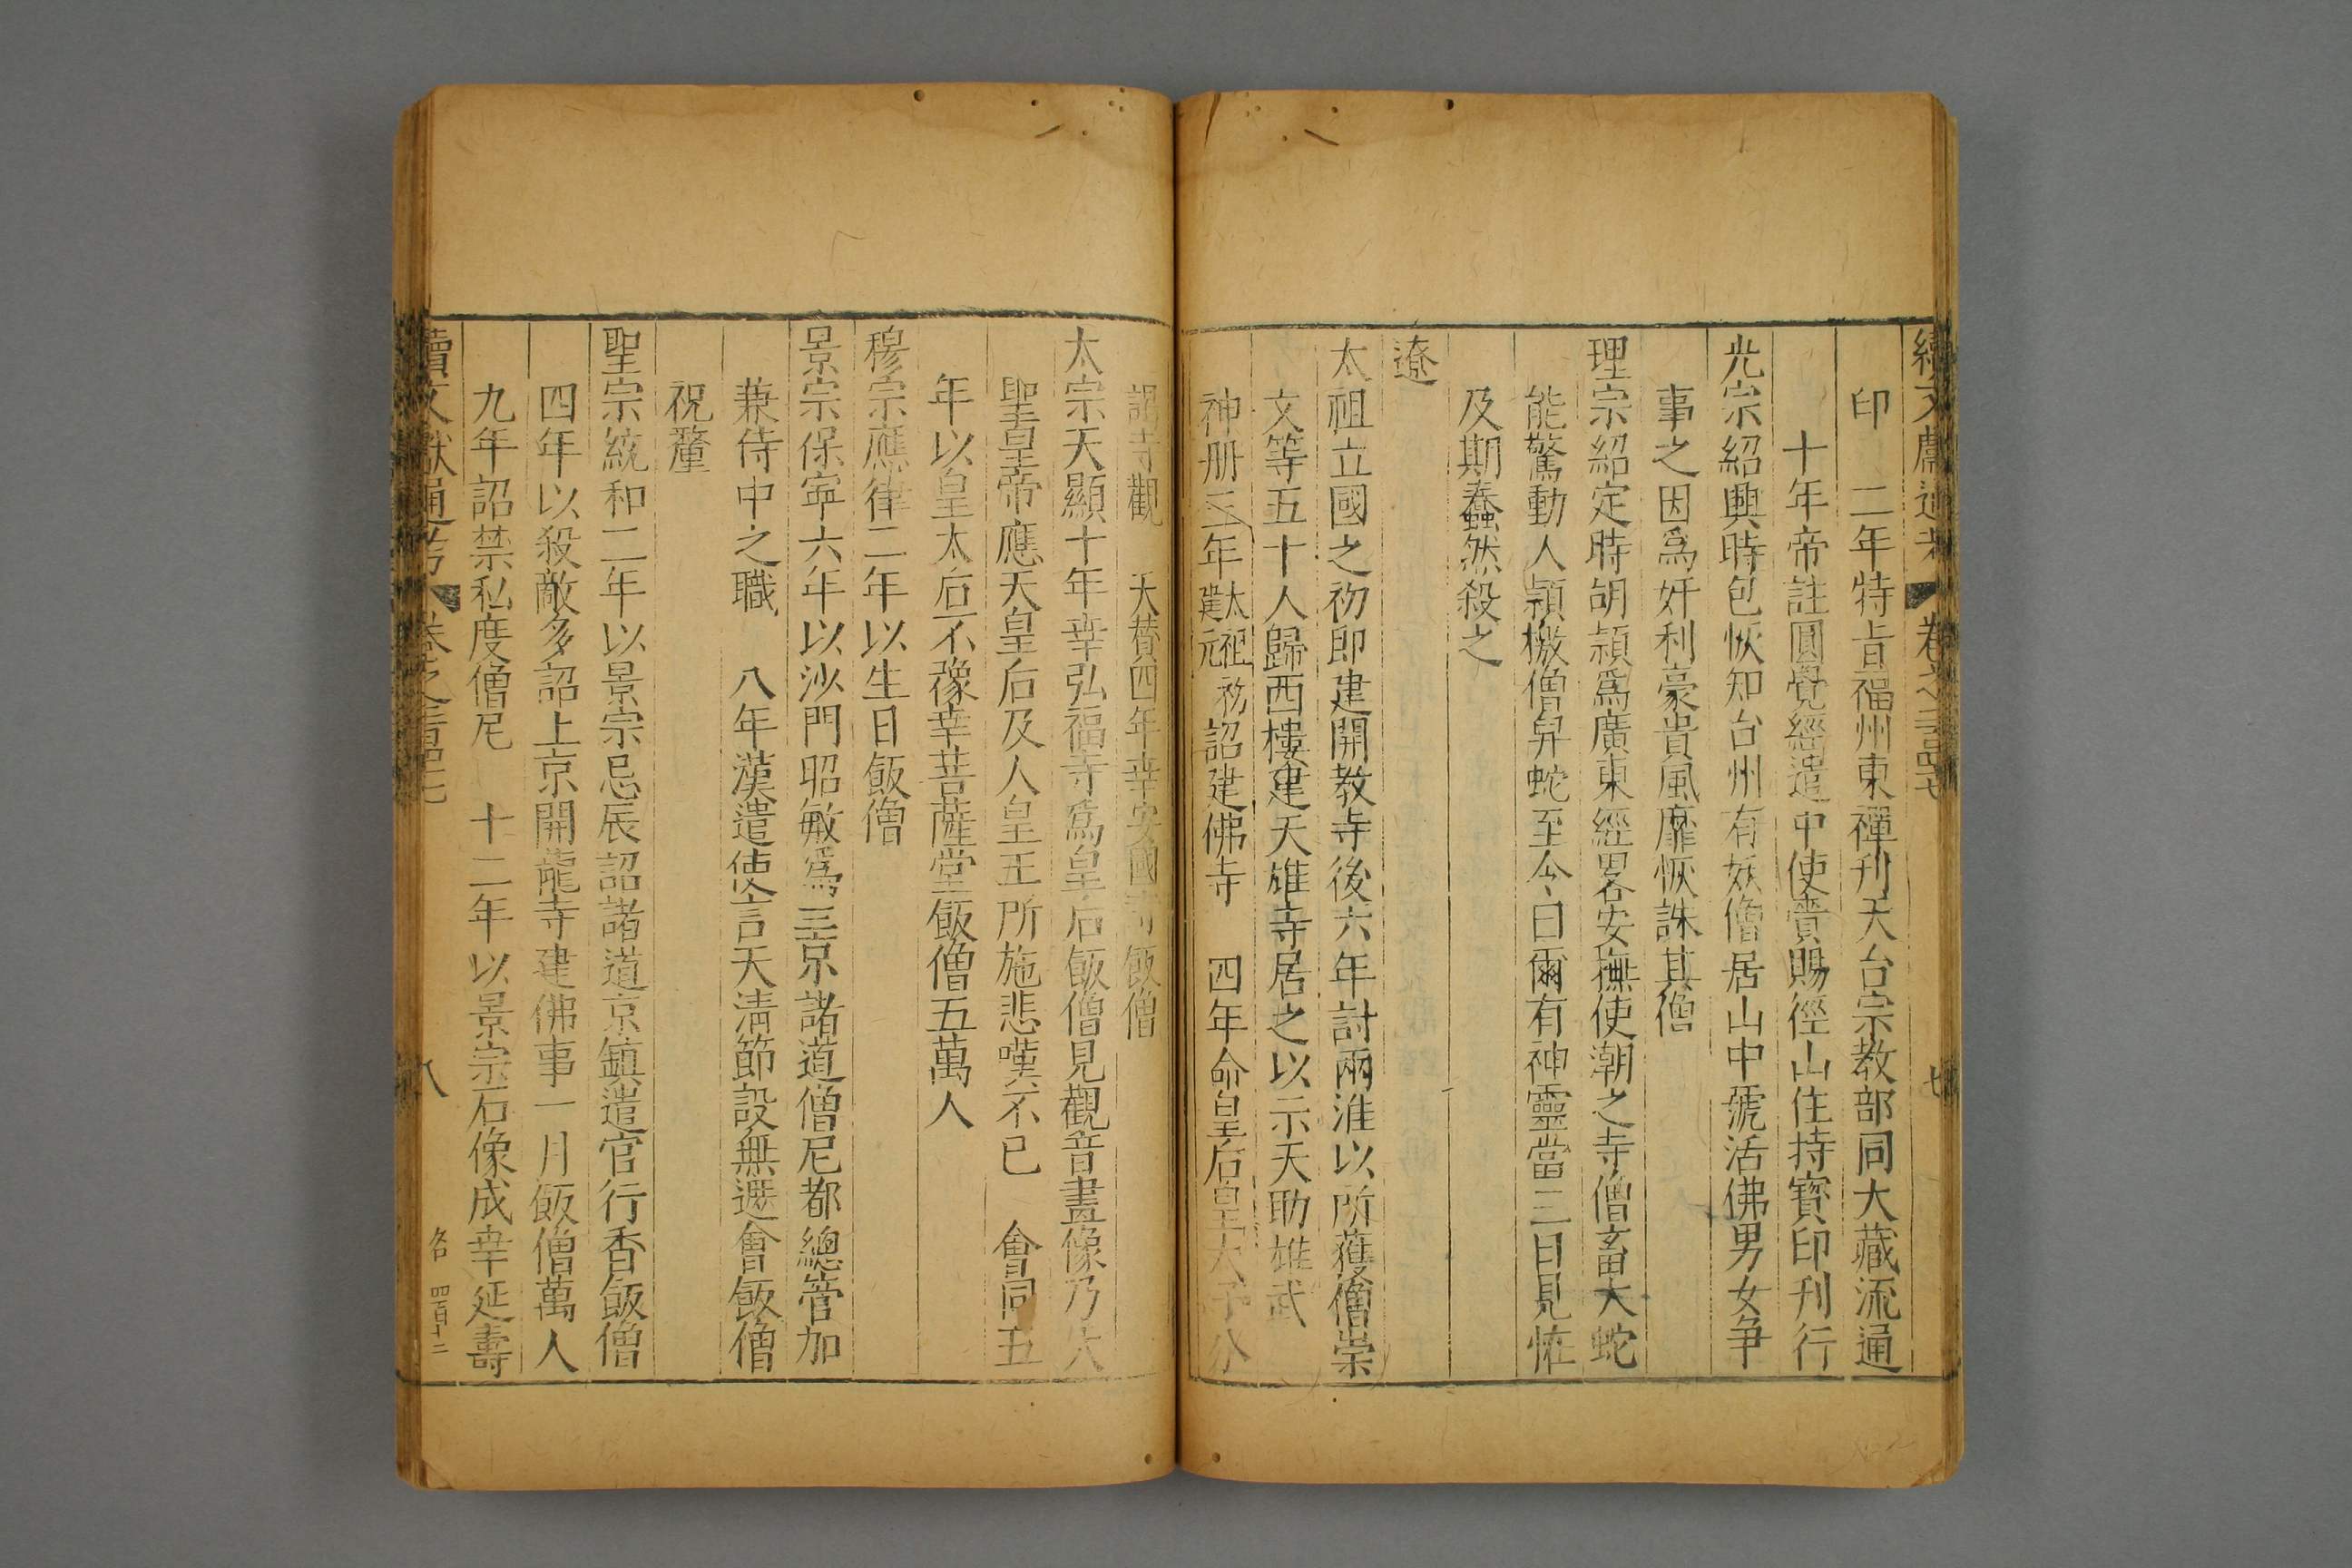 續文獻通考 卷之二百四七 七
印 二年特旨福州東禪刋天台宗教部同大藏流通
十年帝註圓覺經遣中使賫賜徑山住持寳印刋行
光宗紹興時包恢知台州有妖僧居山中號活佛男女爭
事之因爲奸利豪貴風靡恢誅其僧
理宗紹定時胡頴爲廣東經畧安撫使潮之寺僧畜大蛇
能驚動人頴檄僧舁蛇至令曰爾有神靈當三日見恠
及期蠢然殺之
遼
太祖立國之初即建開教寺後六年討兩淮以所獲僧崇
文等五十人歸西樓建天雄寺居之以示天助雄武
神册三年太祖建元初詔建佛寺 四年命皇后皇太子分
謁寺觀 天贊四年幸安國寺飯僧
太宗天顯十年幸弘福寺爲皇后飯僧見觀音畫像乃大
聖皇帝應天皇后及人皇王所施悲嘆不已 會同五
年以皇太后不豫幸菩薩堂飯僧五萬人
穆宗應律二年以生日飯僧
景宗保寜六年以沙門昭敏爲三京諸道僧尼都總管加
兼侍中之職 八年漢遣使言天清節設無遮會飯僧
祝釐
聖宗統和二年以景宗忌辰詔諸道京鎮遣官行香飯僧
四年以殺敵多詔上京開龍寺建佛事一月飯僧萬人
九年詔禁私度僧尼 十二年以景宗石像成幸延壽
續文獻通考 卷之二百四七 八 四百十二